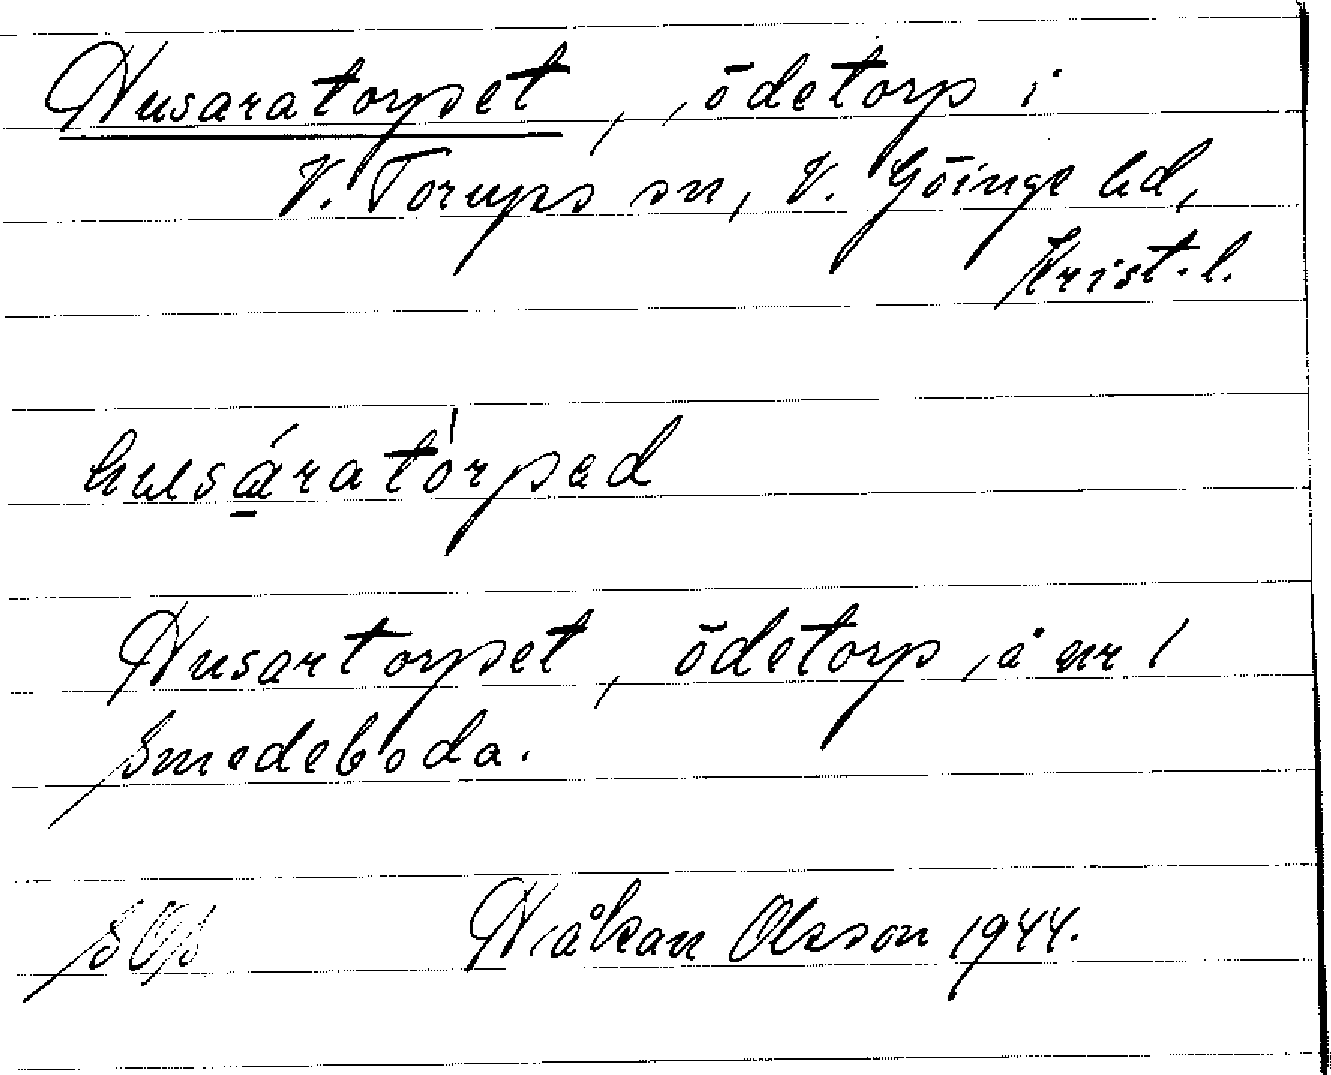 Husaratorpet, ödetorp i
V. Torups sn, V. Göinge hd,
Krist. l.
husáratórped
Husartorpet, ödetorp å nr 1
Smedeboda.
Håkan Olsson 1944.